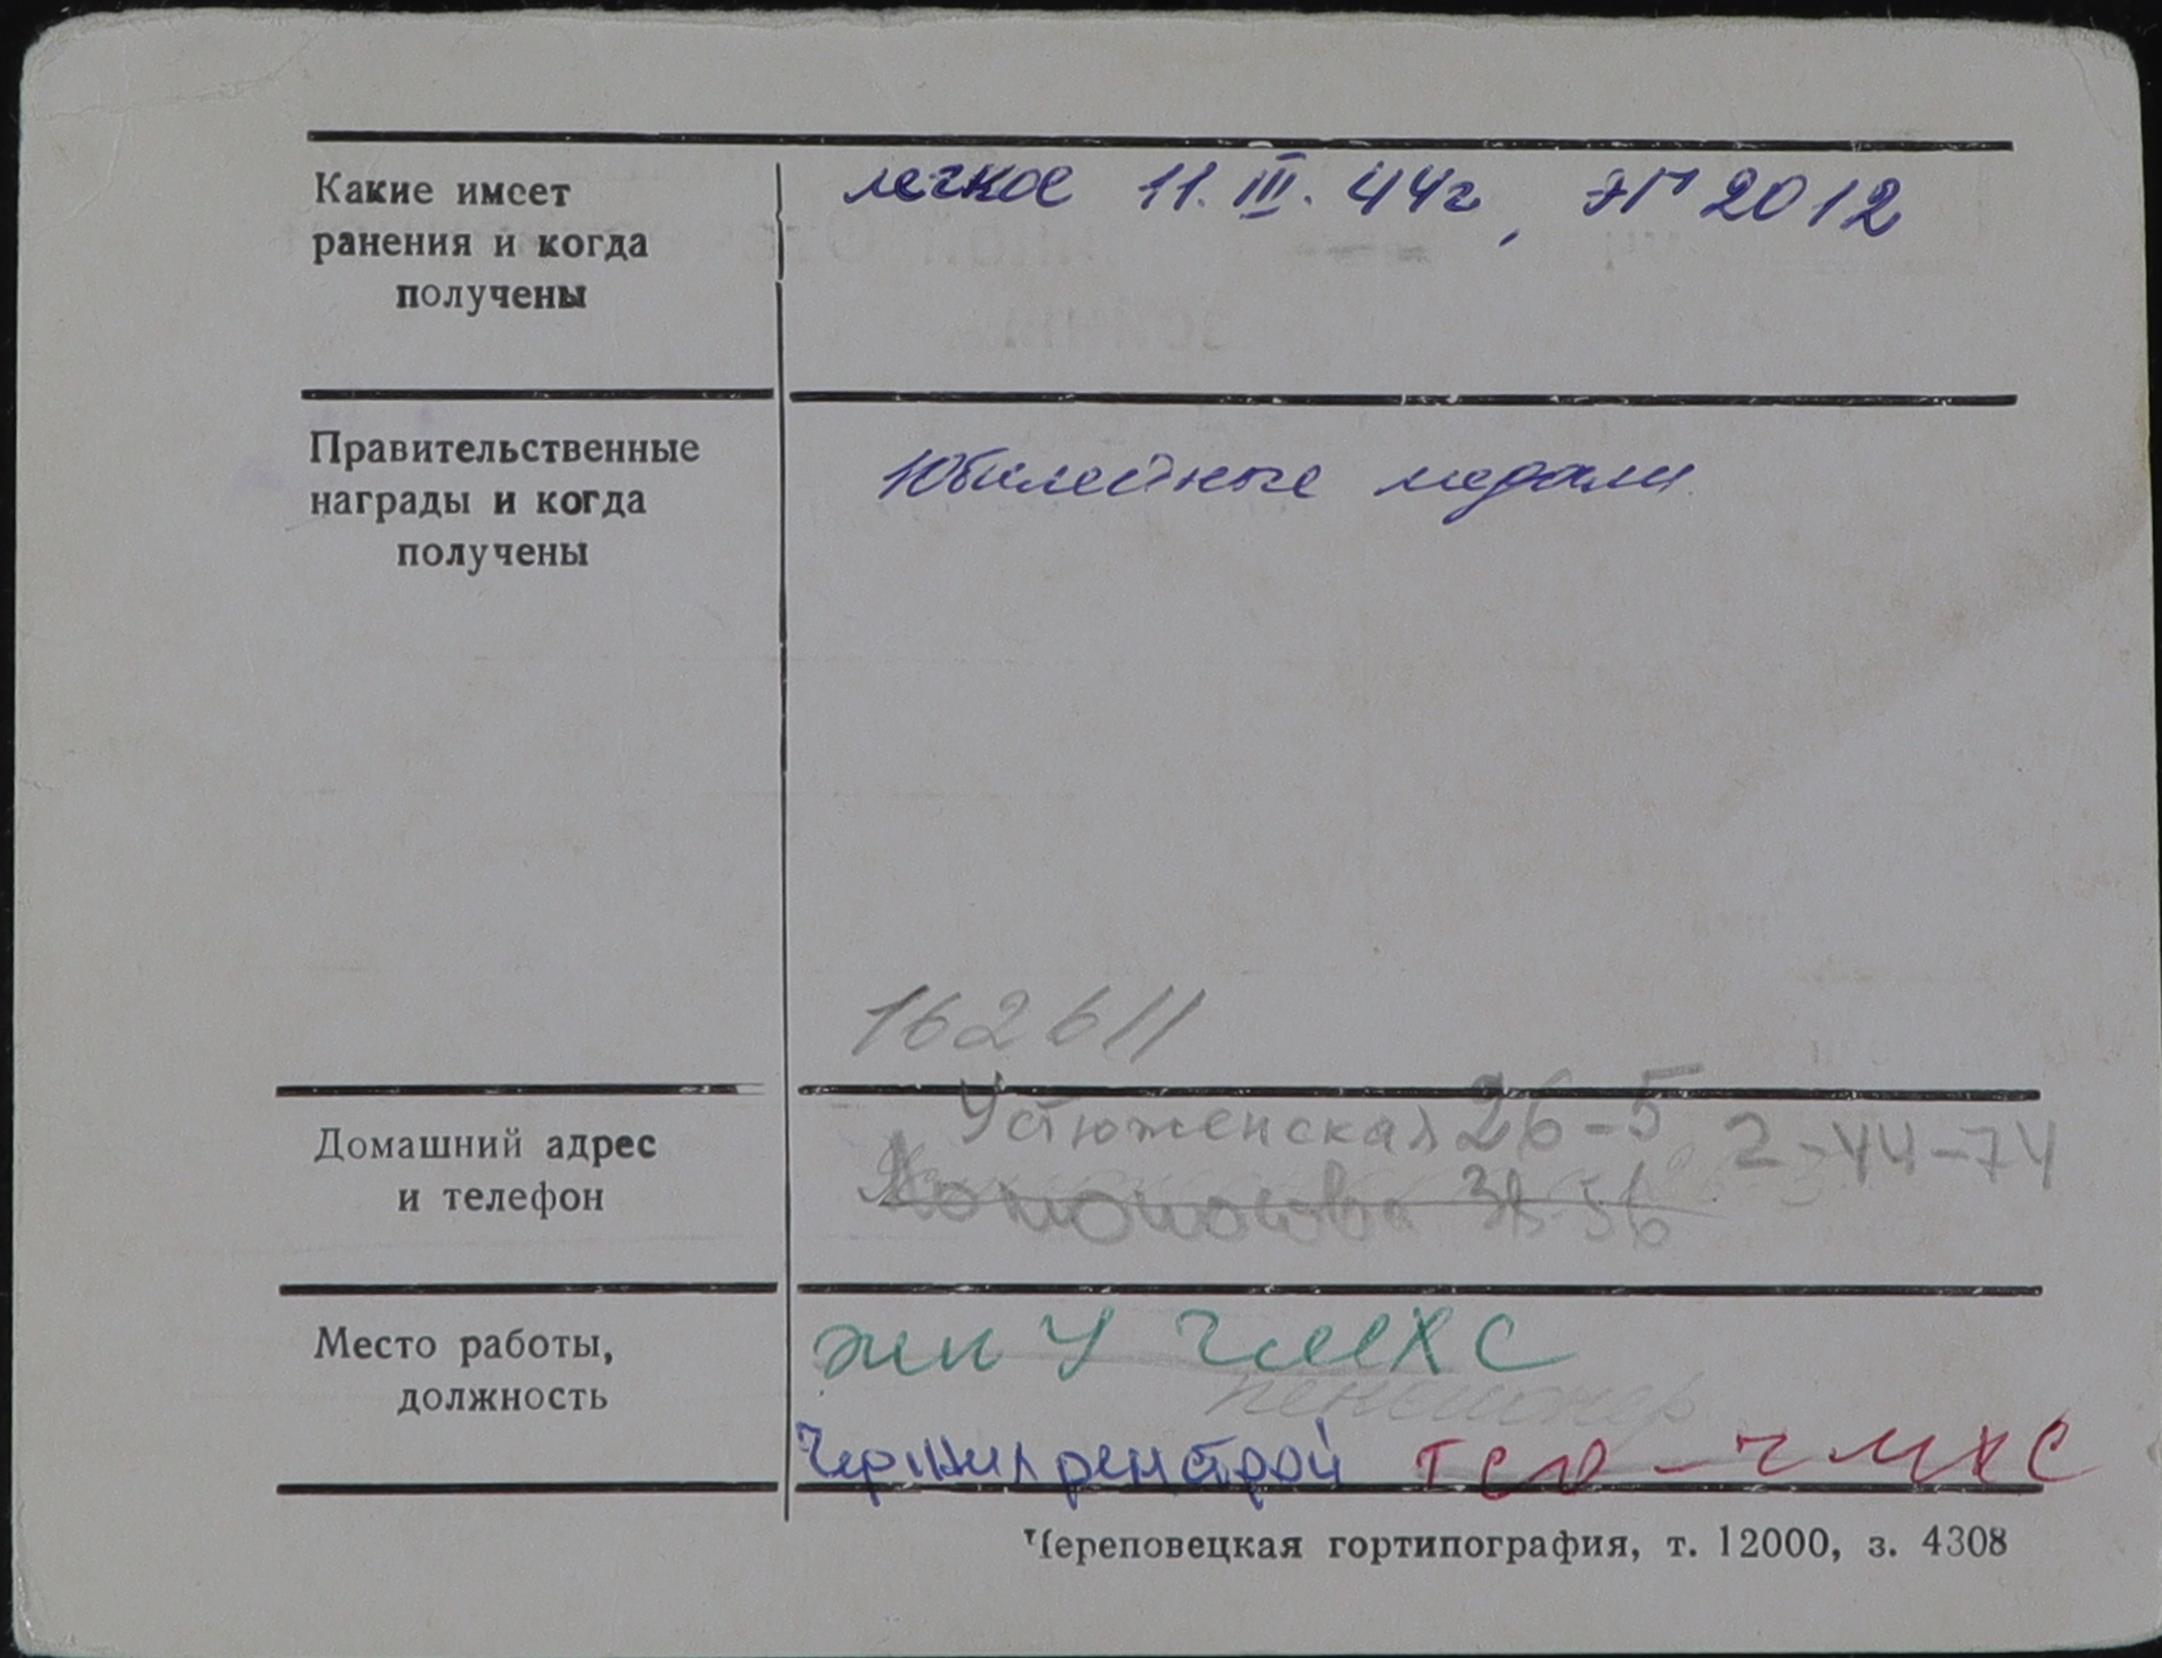 Какие имеет
ранения и когда
получены
легкое 11.III.44г, ЭГ 2012
Правительственные
награды и когда
получены
Юбилейные медали
162611
Домашний адрес
и телефон
Устюженская 26-5 2-44-74
Ломоносова 56
Место работы,
должность
ЖКУ ЧМХС
пенсионер
Чержилремстрой - ЧМХС
Череповецкая гортипография, т. 12000, з. 4308